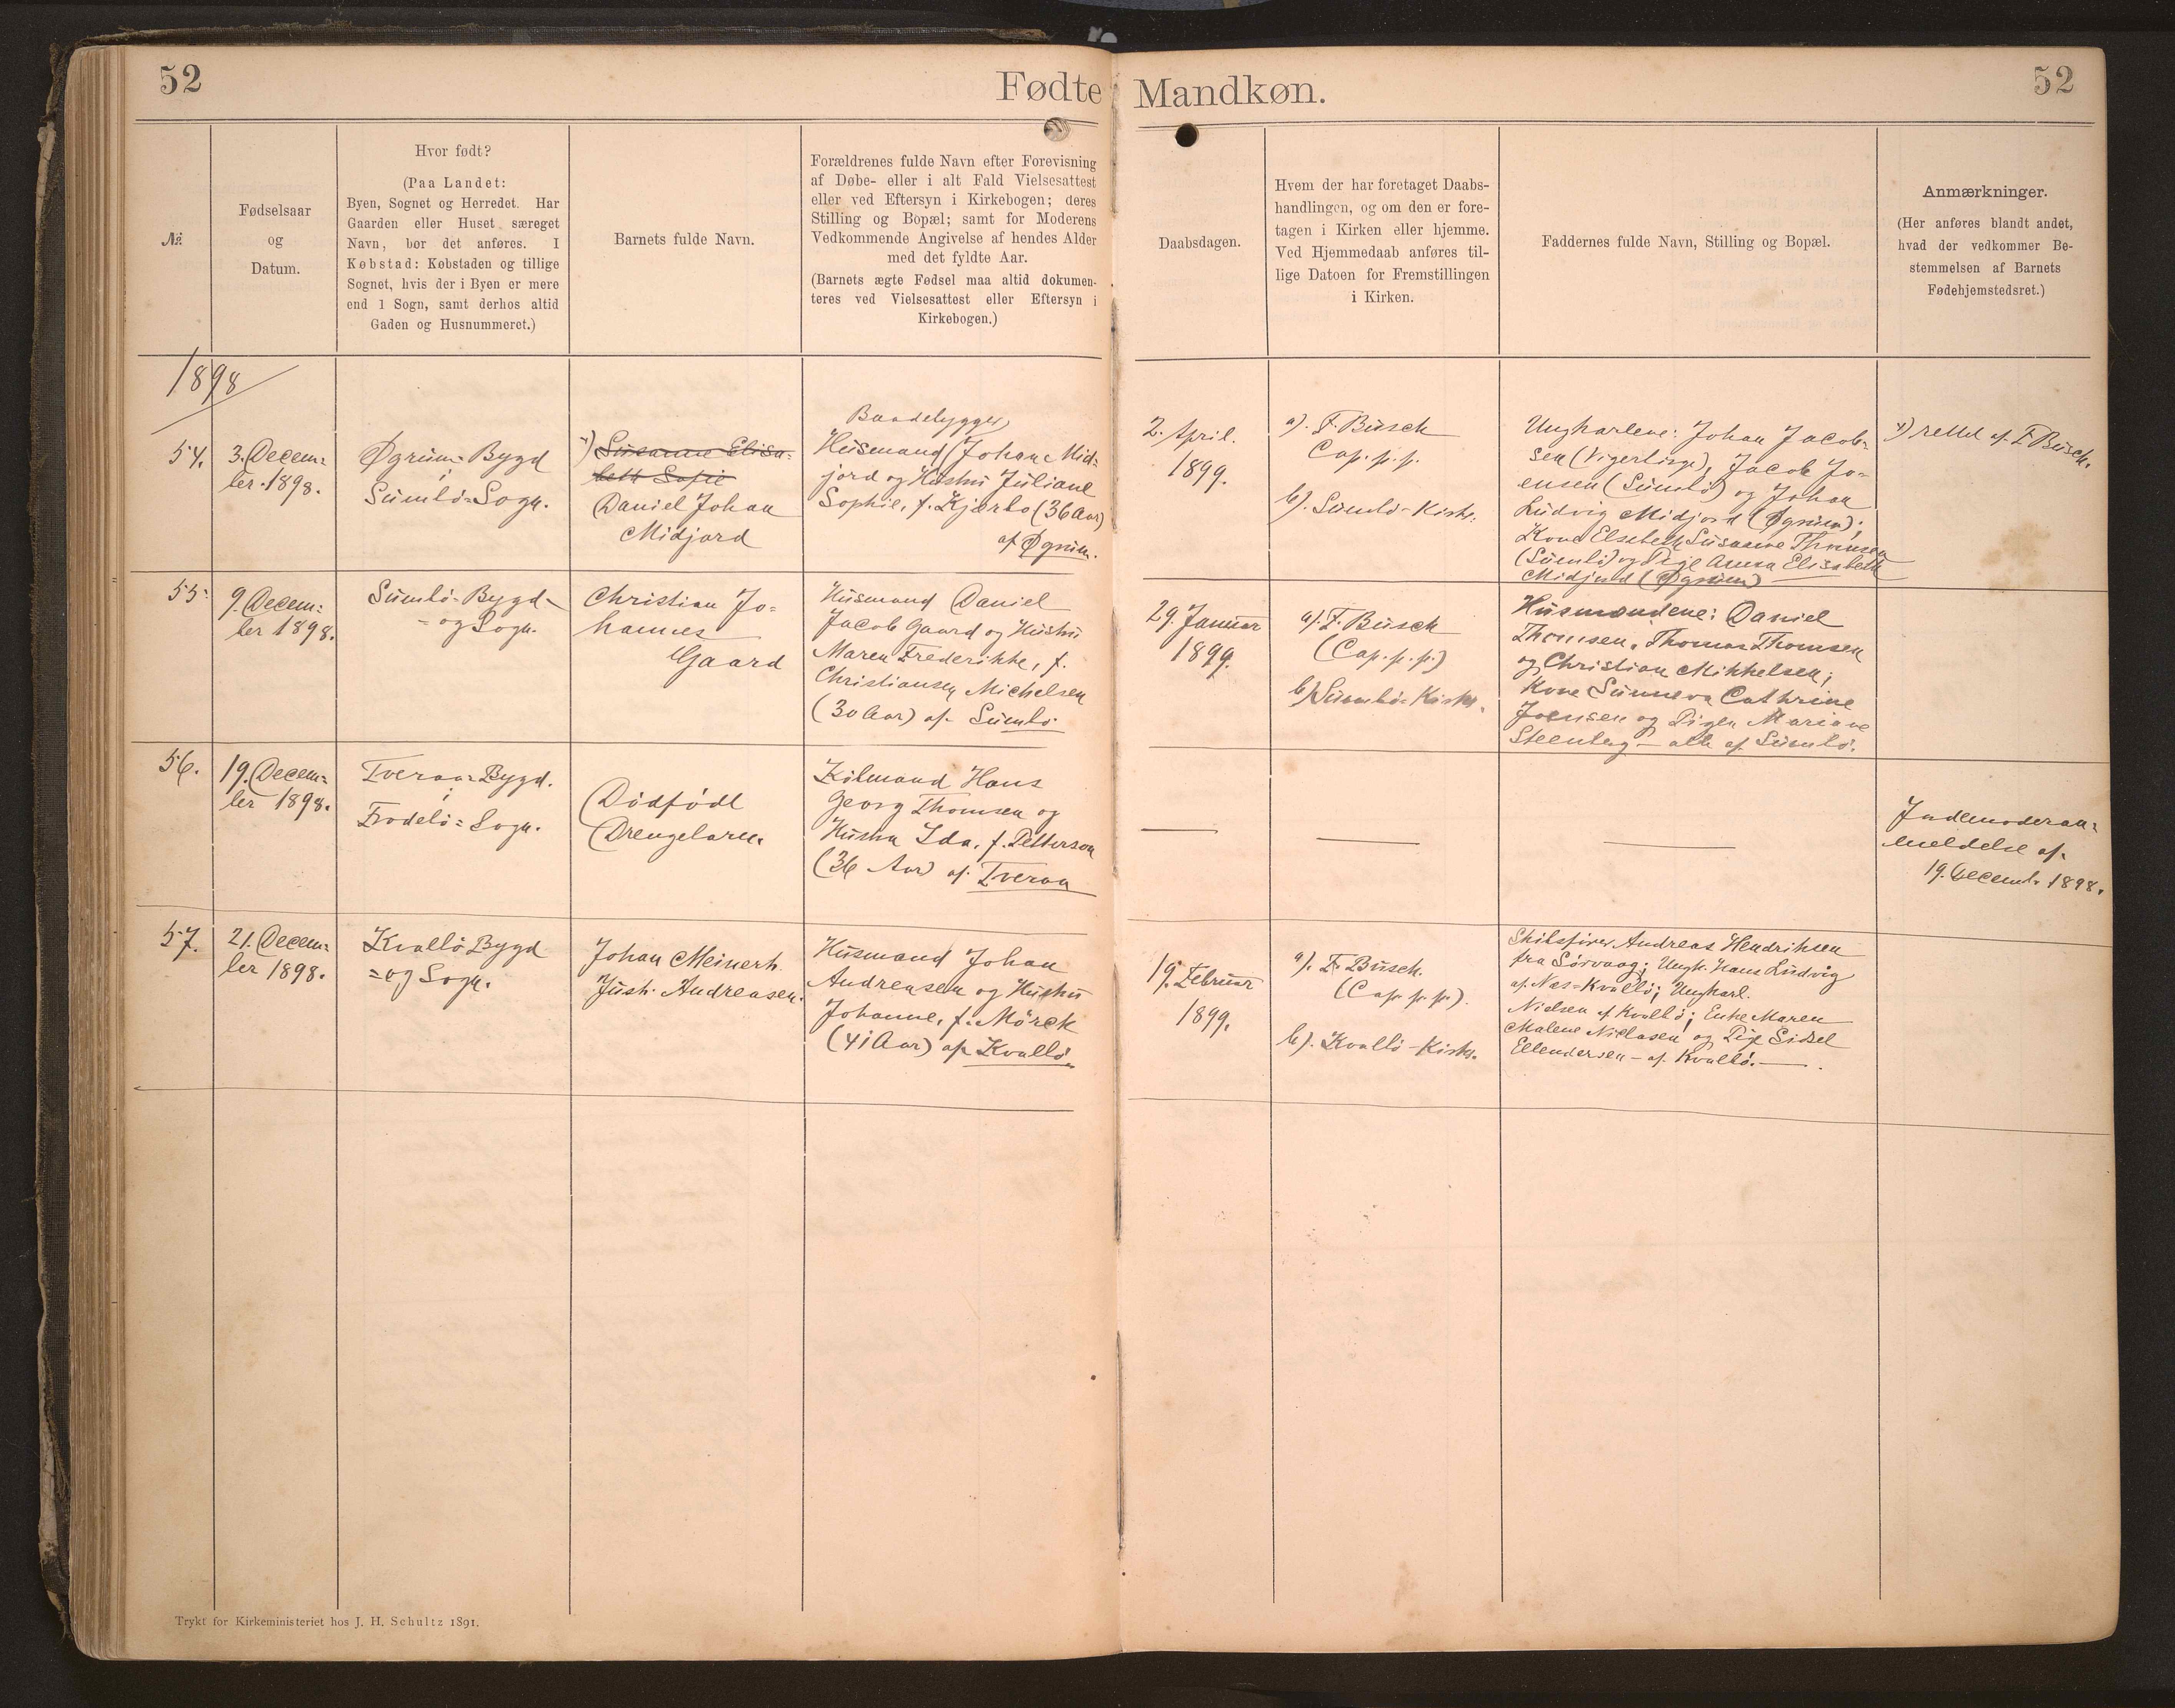 52
Fødte
Mandkøn.
52
№
Fødselsaar
og
Datum.
Hvor født?
(Paa Landet:
Byen, Sognet og Herredet. Har
Gaarden eller Huset særeget
Navn, bør det anføres. I
Købstad: Købstaden og tillige
Sognet, hvis der i Byen er mere
end 1 Sogn, samt derhos altid
Gaden og Husnummeret.)
Barnets fulde Navn.
Forældrenes fulde Navn efter Forevisning
af Døbe- eller i alt Fald Vielsesattest
eller ved Eftersyn i Kirkebogen; deres
Stilling og Bopæl; samt for Moderens
Vedkommende Angivelse af hendes Alder
med det fyldte Aar.
(Barnets ægte Fødsel maa altid dokumen-
teres ved Vielsesattest eller Eftersyn i
Kirkebogen.)
Daabsdagen.
Hvem der har foretaget Daabs-
handlingen, og om den er fore-
tagen i Kirken eller hjemme.
Ved Hjemmedaab anføres til-
lige Datoen for Fremstillingen
i Kirken.
Faddernes fulde Navn, Stilling og Bopæl.
Anmærkninger.
(Her anføres blandt andet,
hvad der vedkommer Be-
stemmelsen af Barnets
Fødehjemstedsret.)
1898
54.
3. Decem=
ber 1898.
Øgrum=Bygd
Sumbø=Sogn.
Susanne Elisa=
beth Sofie
Daniel Johan
Midjord
Baadebygger
Husmand Johan Mid=
jord og Hustru Juliane
Sophie, f. Kjærbo (36 Aar)
af Øgrum.
2. April.
1899.
a). F. Busch
Cap. p. p.
b). Sumbø-Kirke.
Ungkarlene: Johan Jacob=
sen (Vigerlinge), Jacob Jo=
ensen (Sumbø) og Johan
Ludvig Midjord (Øgrum);
Kone Elsebeth Susanne Thomsen
(Sumbø) og Pige Anna Elisabeth
Midjord (Øgrum)
rettet af F Busch.
55.
9. Decem=
ber 1898.
Sumbø=Bygd-
=og Sogn.
Christian Jo=
hannes
Gaard
Husmand Daniel
Jacob Gaard og Hustru
Maren Frederikke, f.
Christiansen Michelsen
(30 Aar) af Sumbø.
29. Januar
1899.
a). F. Busch
(Cap. p. p.)
b) Sumbø=Kirke.
Husmændene: Daniel
Thomsen, Thomas Thomsen
og Christian Mikkelsen;
Kone Sunneva Cathrine
Joensen og Pigen Mariane
Steenberg - alle af Sumbø.
56.
19. Decem=
ber 1898.
Tveraa=Bygd.
Frodebø=Sogn.
Dødfødt
Drengebarn.
Købmand Hans
Georg Thomsen og
Hustru Ida, f. Petterson
(36 Aar) af Tveraa
Jordemoderan=
meldelse af
19. Decemb. 1898.
57.
21. Decem=
ber 1898.
Kvalbø Bygd
=og Sogn.
Johan Meinert
Just. Andreasen.
Husmand Johan
Andreasen og Hustru
Johanne, f. Mörck
(41 Aar) af Kvalbø.
19. Februar
1899.
a). F. Busch.
(Cap. p. p.).
b). Kvalbø-Kirke.
Skibsfører Andreas Hendriksen
fra Sørvaag; Ungk. Hans Ludvig
af Næs=Kvalbø; Ungkarl.
Nielsen af Kvalbø; Enke Maren
Malene Niclasen og Pige Sidsel
Ellendersen - af Kvalbø.
Trykt for Kirkeministeriet hos J. H. Schultz 1891.